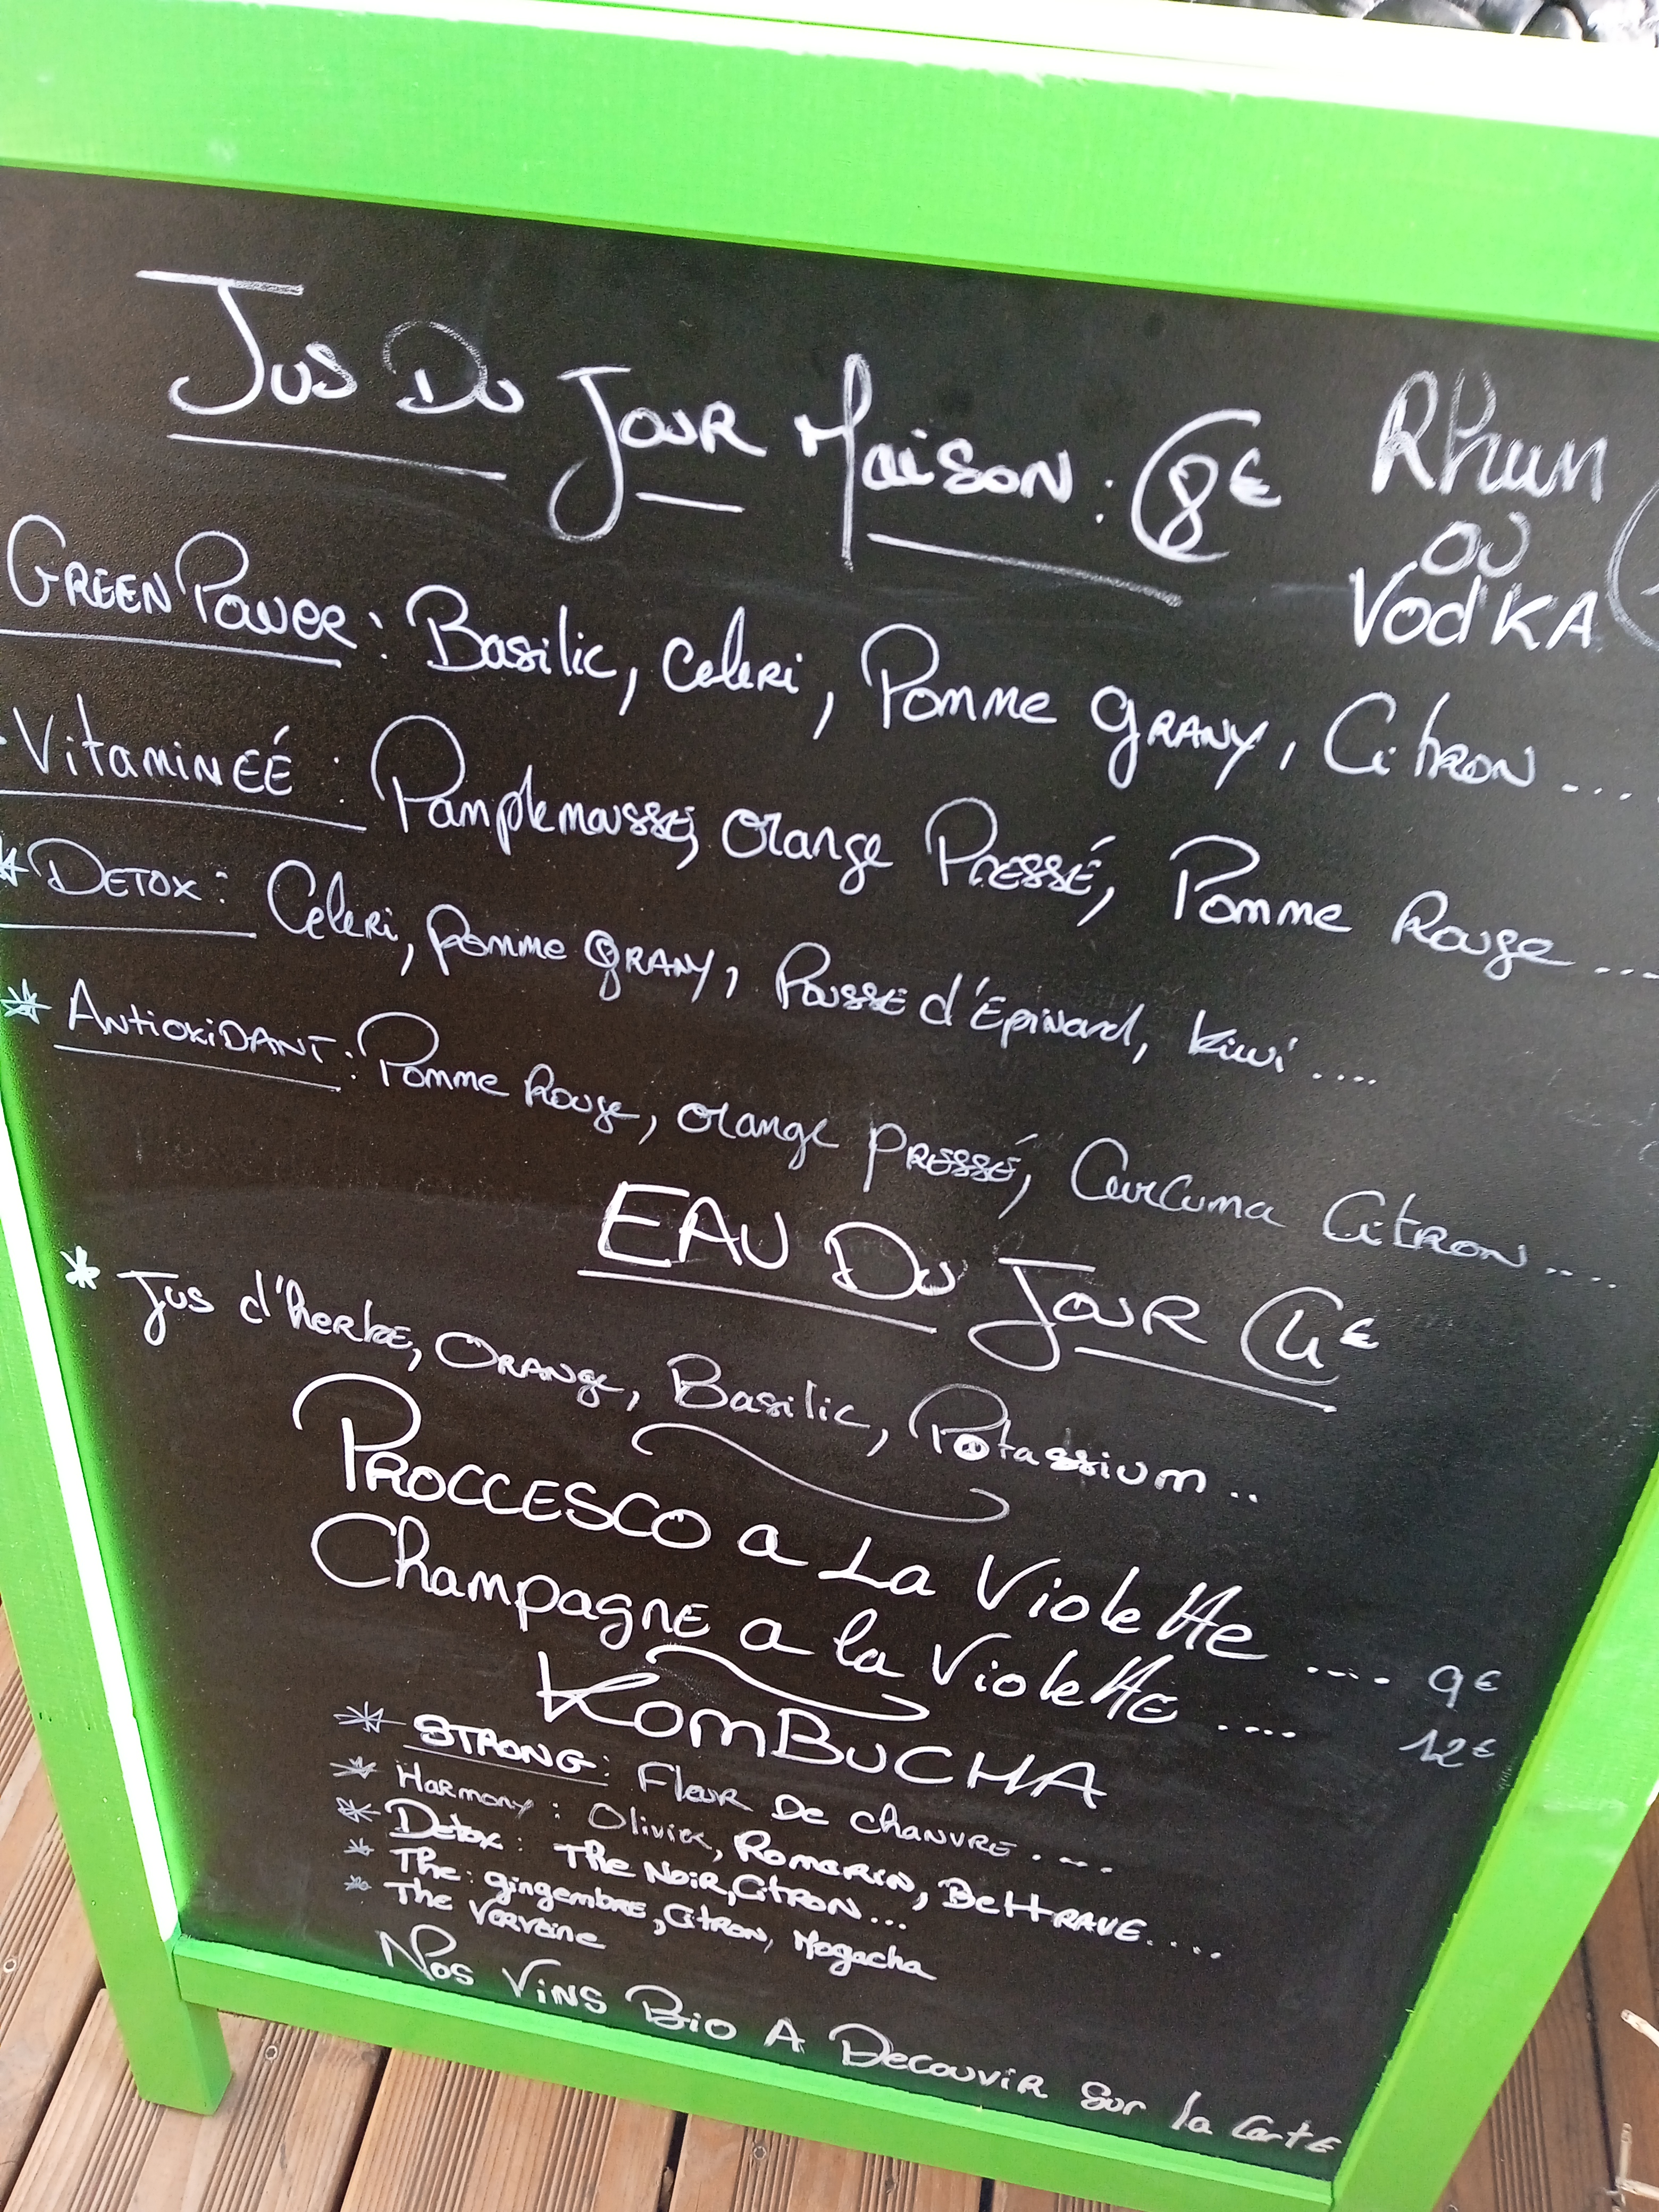 Jus Du Jour Maison : 8€
Rhum
ou
Vodka
Green Power : Basilic, Celeri, Pomme Grany, Citron ....
Vitamineé : Pamplemousse, Orange Pressé, Pomme Rouge ....
* Detox : Celeri, Pomme Grany, Pousse d'Epinard, Kiwi ....
* Antioxidant : Pomme Rouge, Orange Pressé, Curcuma Citron ....
Eau Du Jour 4€
* Jus d'herbe, Orange, Basilic, Potassium ..
Proccesco a La Violette .... 9€
Champagne a la Violette .... 12€
Kombucha
* Strong : Fleur De Chanvre ....
* Harmony : Olivier, Romarin, Bettrave ....
* Detox : The Noir, Citron ...
* The : gingembre, Citron, Mogacha
* The Verveine
Nos Vins Bio A Decouvir Sur la Carte